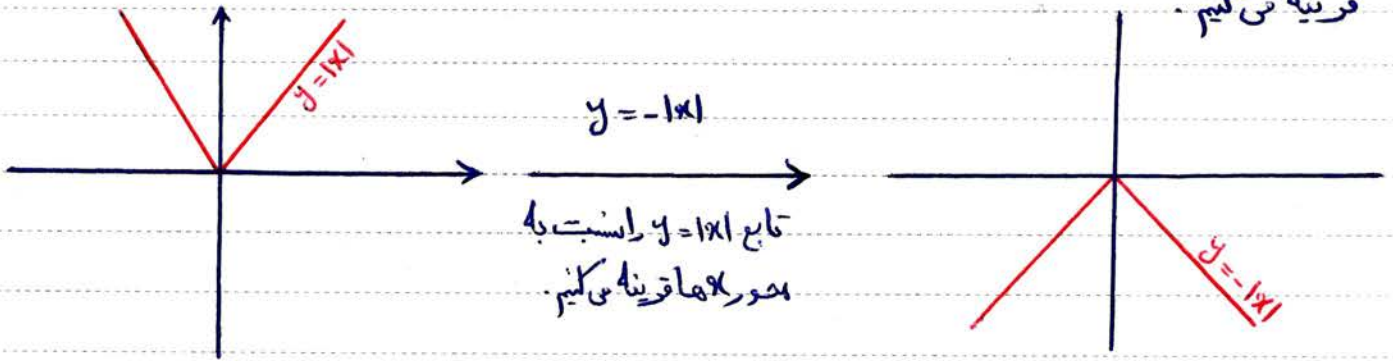 قرینه می کنیم.
y = |x|
y = -|x|
تابع y = |x| را نسبت به
محور x ها قرینه می کنیم.
y = -|x|